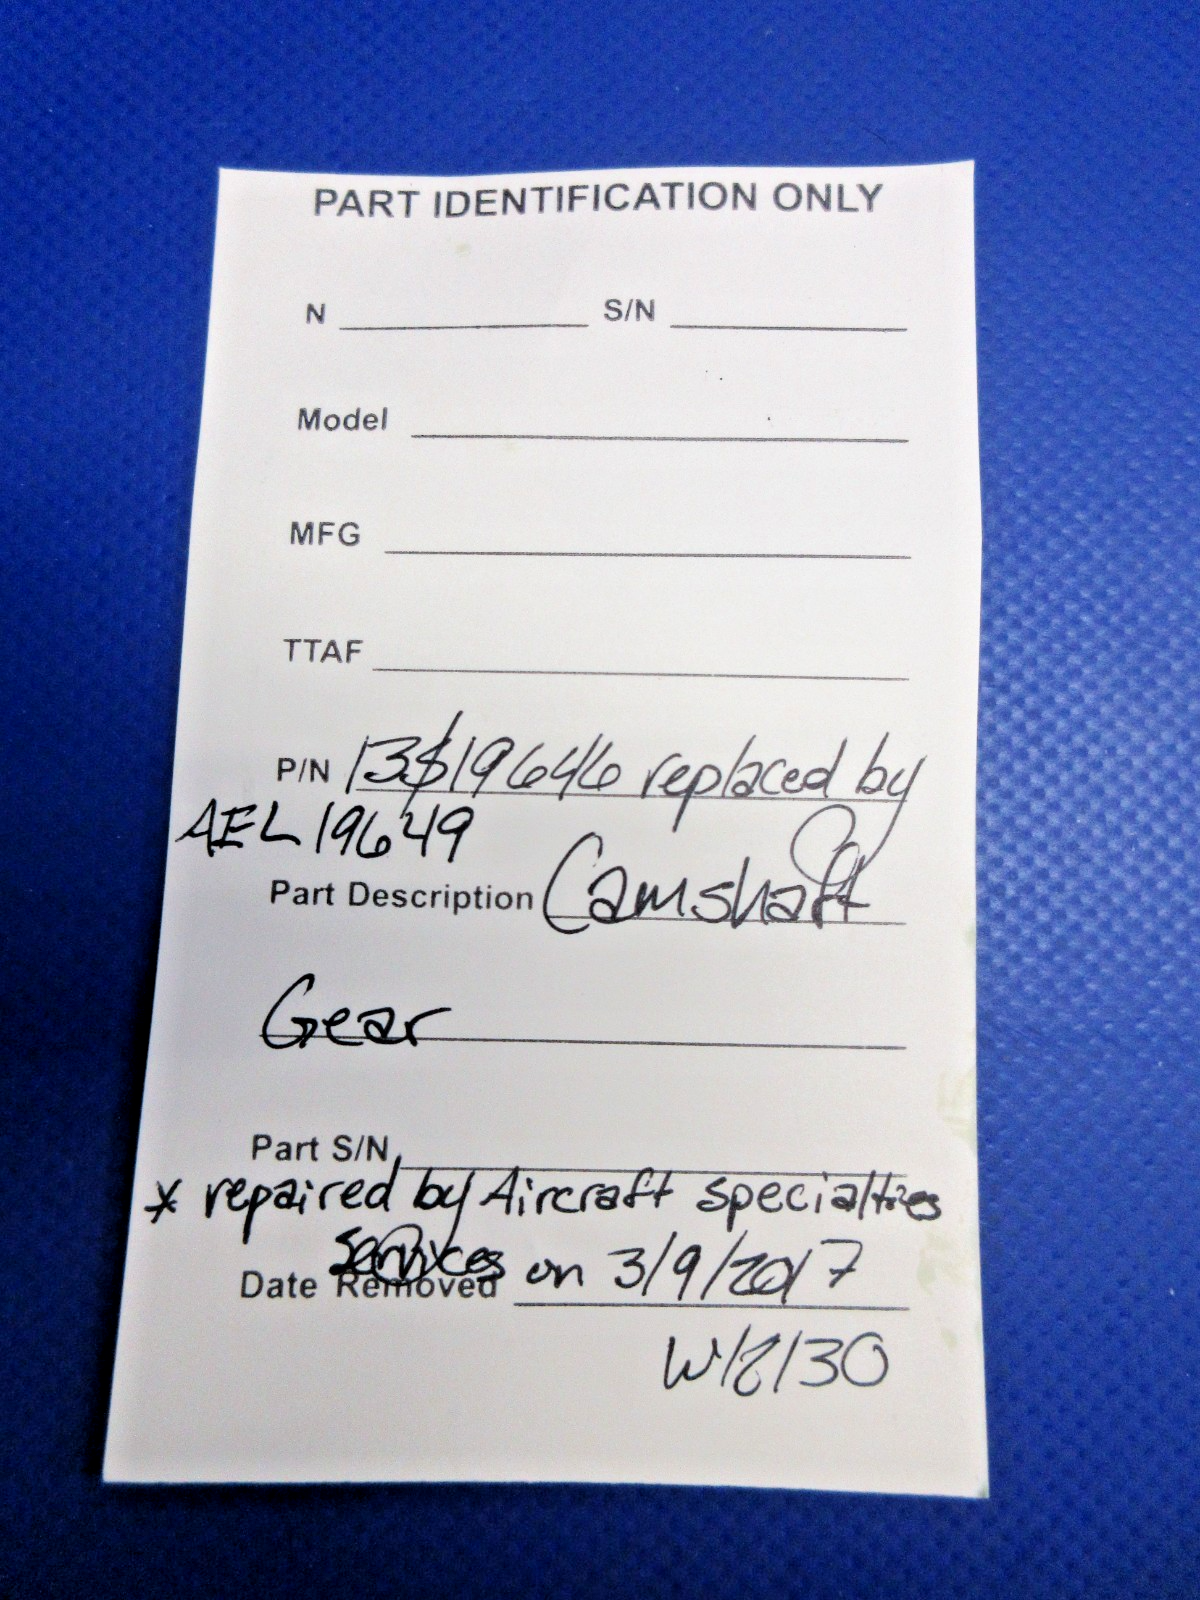 PART IDENTIFICATION ONLY
N S/N
Model
MFG
TTAF
P/N 13S19646 replaced by
AEL19649
Part Description Camshaft
Gear
Part S/N
* repaired by Aircraft specialties
services on 3/9/2017
Date Removed
W/8130